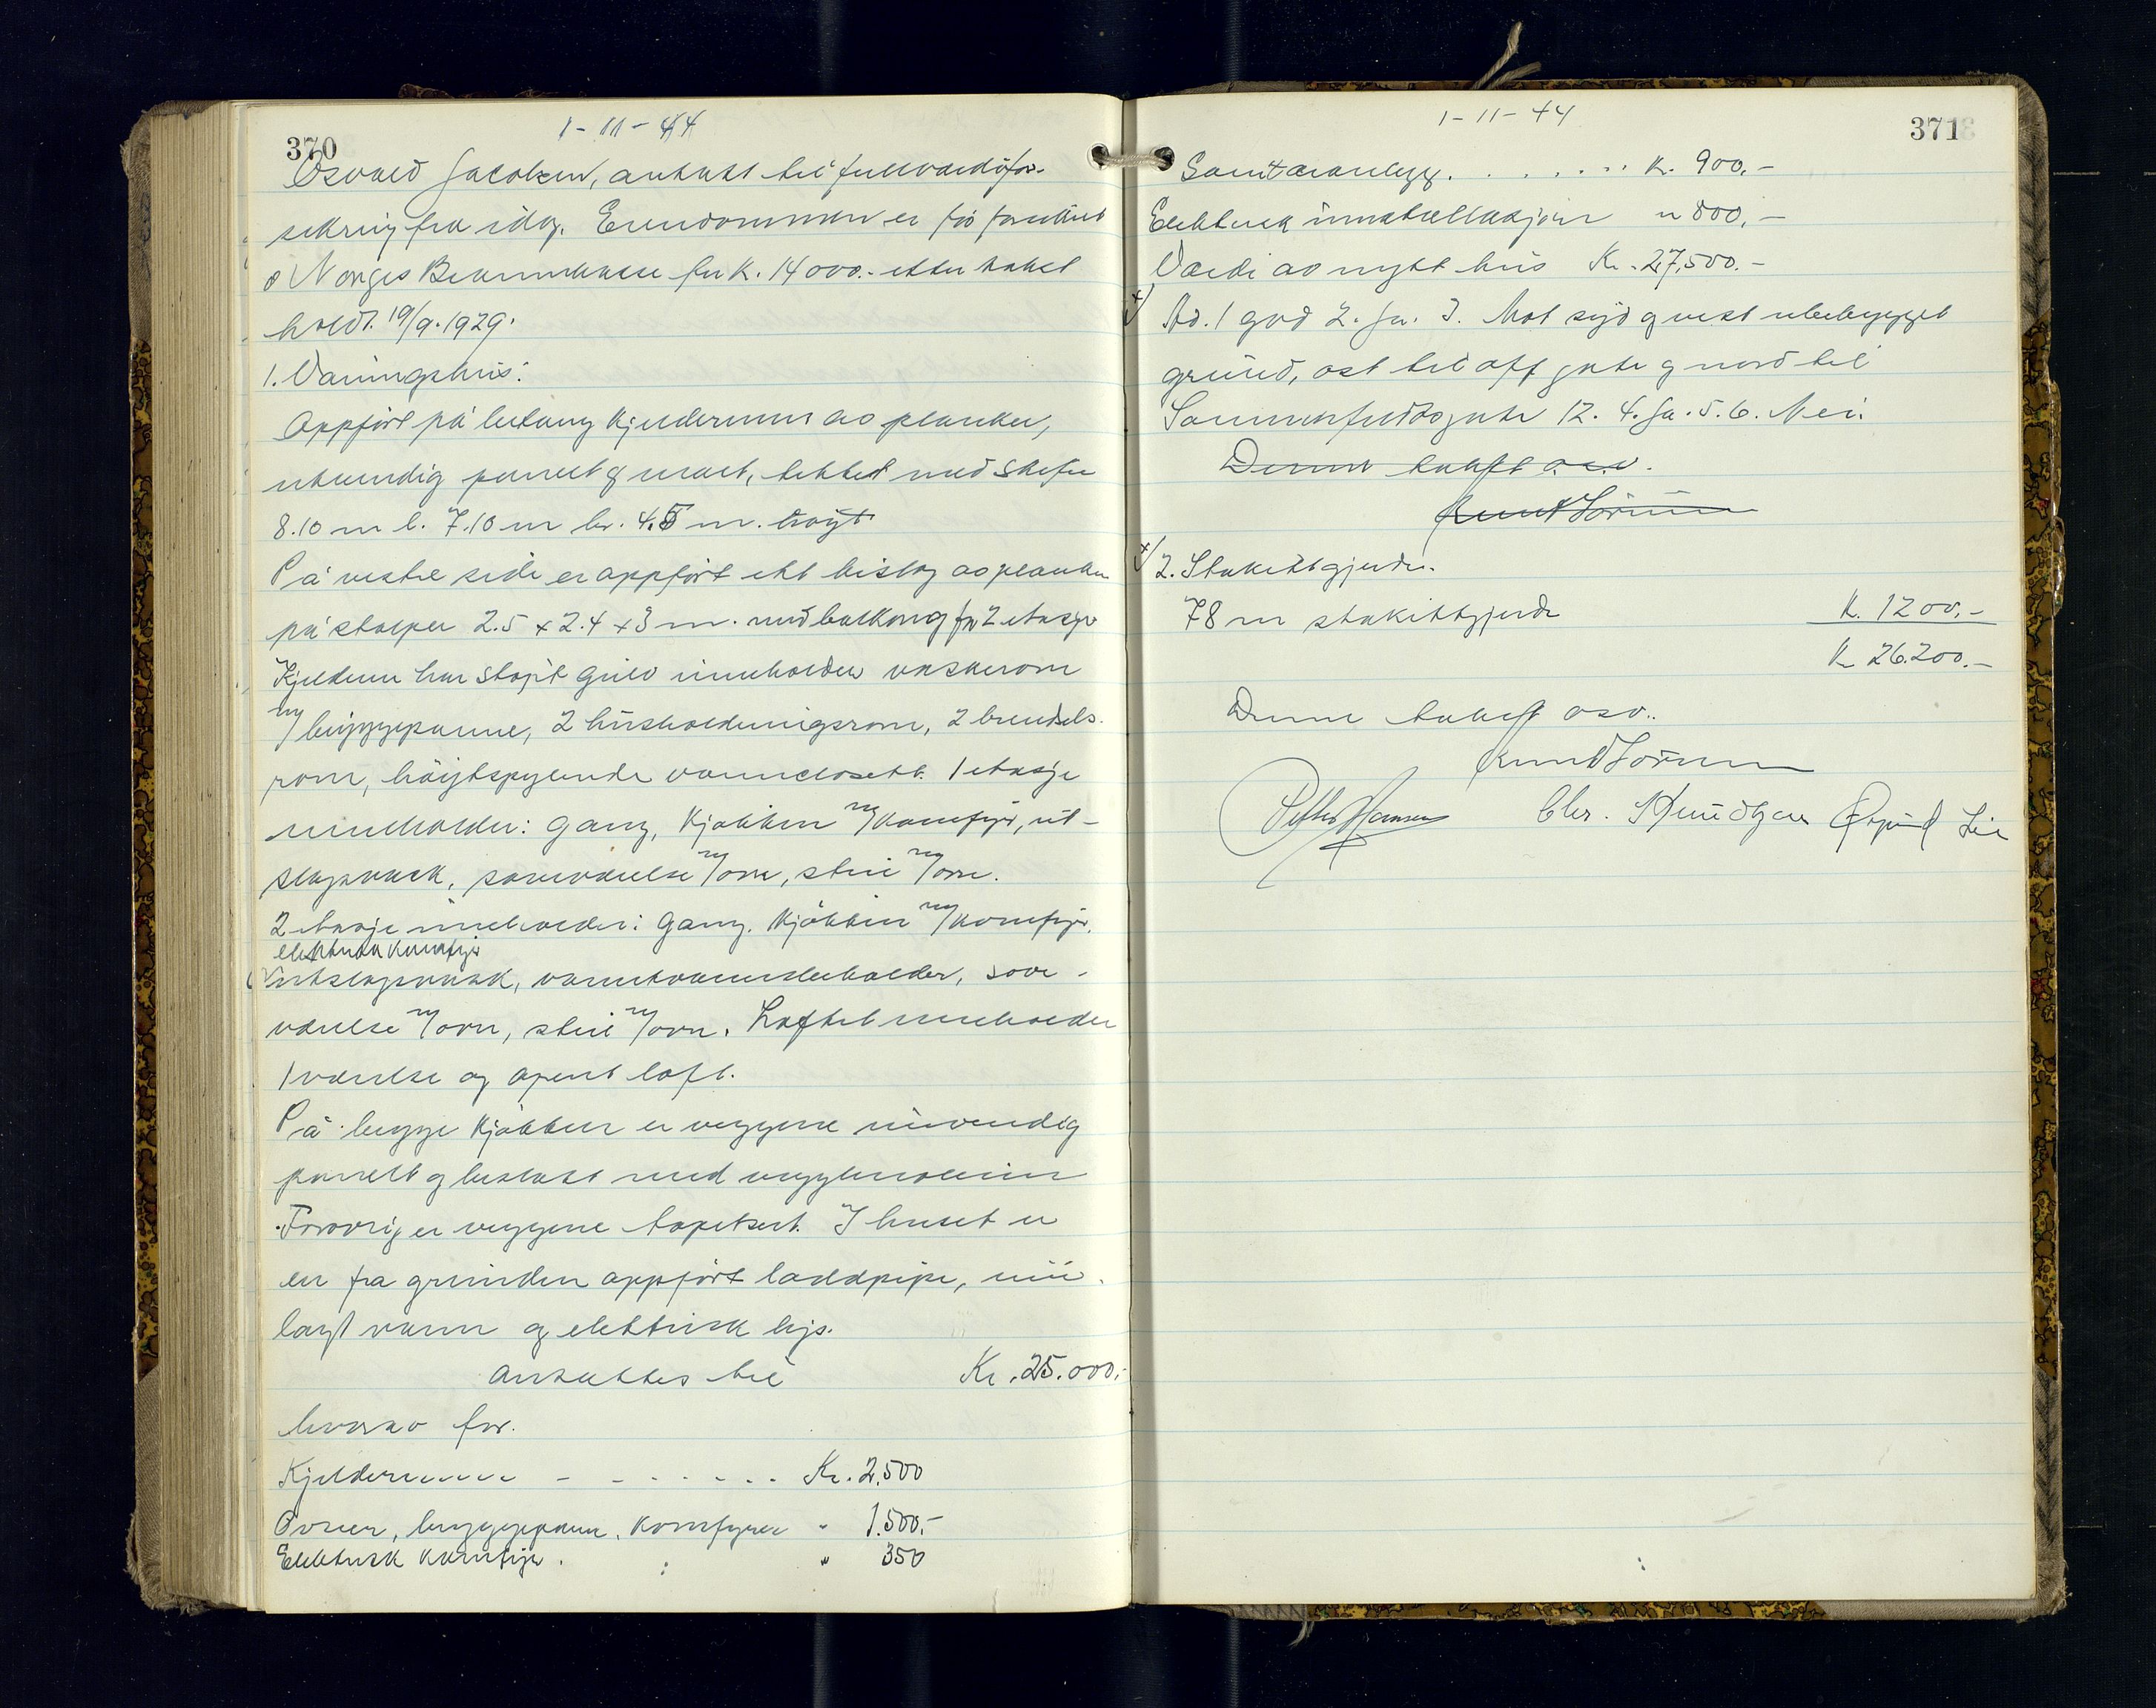 1-11-44
370
Osvald Jacobsen, antatt til fullverdifor-
sikring fra idag. Eiendommen er för forsikret
i Norges Brannkasse for K. 14 000.- etter takst
holdt 19/9.1929.
1. Våningshus:
Oppfört på betong kjellermur av planker,
utvendig panelt og malt, tekket med skifer
8.10 m l. 7.10 m br. 4.5 m. höyt
På vestre side er oppfört ett bislag av planker
på stolper 2.5 x 2.4 x 3 m. med balkong for 2 etasje
Kjelleren har stöpt gulv inneholder vaskerom
m/ bryggepanne, 2 husholdningsrom, 2 brendsels-
rom, höytspylende vannclosett. 1 etasje
inneholder: gang, kjökken m/komfyr, ut-
slagsvask, soveværelse m/ovn, stue m/ovn.
2 etasje inneholder: gang. kjökken m/komfyr,
elektrisk komfyr
utslagsvask, varmtvannsbeholder, sove-
værelse m/ovn, stue m/ovn. Loftet inneholder
1 værelse og åpent loft.
På begge kjökken er veggene innvendig
panelt og beslått med vegglinoleum
Forövrig er veggene tapetsert. I huset er
en fra grunden oppfört loddpipe, inn-
lagt vann og elektrisk lys.
Ansattes til Kr. 25.000.-
hvorav for.
Kjellermuren - - - - - - - Kr. 2.500
Ovner, bryggepanne, komfyrer " 1.500.-
Elektrisk komfyr. " 350
1-11-44
371
Sanitæranlegg. . . . . . . . K. 900.-
Elektrisk innstallasjon " 800.-
Verdi av nytt hus Kr. 27,500.-
x/ Ad. 1 god 2. Ja. 3. Mot syd og vest ubebygget
grund, öst til off gate og nord til
Sammenfundsgate 12. 4. Ja. 5. 6. Nei.
Denne takst o.s.v.
Knut Sörum
x/ 2. Stakittgjerde.
78 m stakittgjerde K. 1200.-
K. 26.200.-
Denne takst osv..
Knut Sörum
Petter Hansen Chr. Knudsen Øyvind Lie